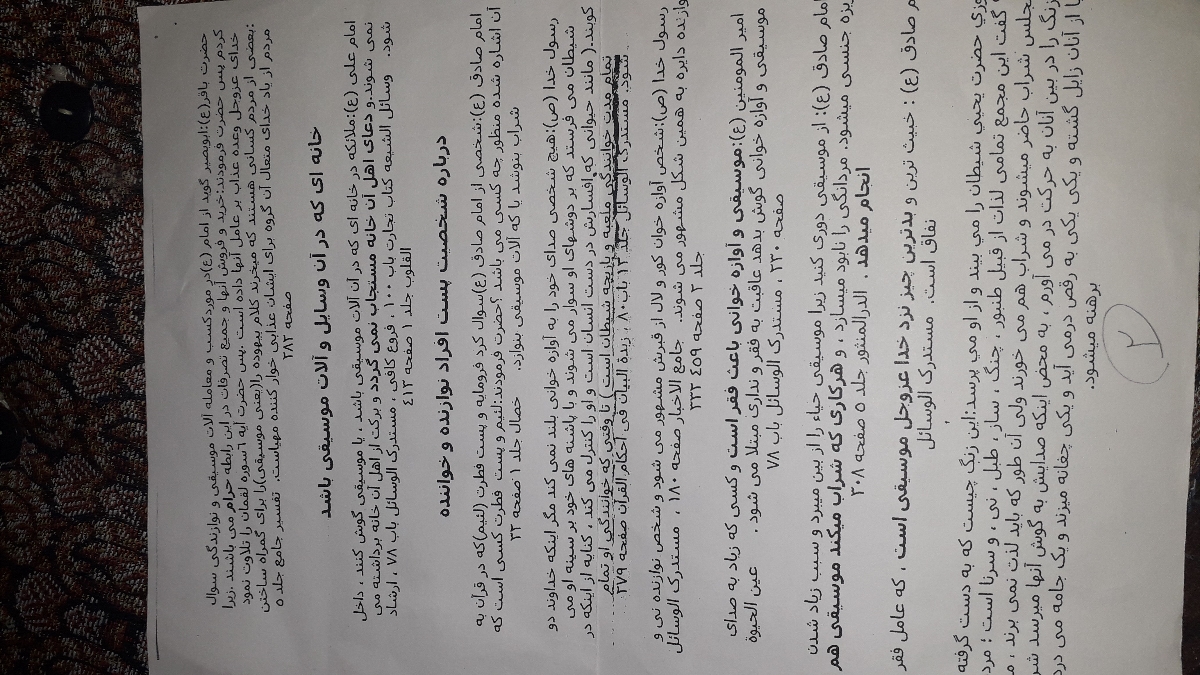 حضرت باقر(ع):ابوبصیر گوید از امام (ع)در موردکسب و معامله آلات موسیقی و نوازندگی سوال
کردم پس حضرت فرمودند:خرید و فروش آنها و جمیع تصرفات در این رابطه حرام می باشند .زیرا
خدای عزوجل وعده عذاب بر عامل آنها داده است .پس حضرت آیه ۶سوره لقمان را تلاوت نمود
:بعضی از مردم کسانی هستند که میخرند کلام بیهوده را(یعنی موسیقی)را برای گمراه ساختن
مردم از یاد خدای متعال آن گروه برای ایشان عذابی خوار کننده مهیاست. تفسیر جامع جلد ۵
صفحه ۲۸۲
خانه ای که در آن وسایل و آلات موسیقی باشد
امام علی (ع):ملائکه در خانه ای که در آن آلات موسیقی باشد ، یا موسیقی گوش کنند ، داخل
نمی شوند.و دعای اهل آن خانه مستجاب نمی گردد و برکت از اهل آن خانه برداشته می
شود. وسائل الشیعه کتاب تجارت باب ۱۰۰ ، فروع کافی ، مستدرک الوسائل باب ۷۸ ، ارشاد
القلوب جلد ۱ صفحه ۴۱۳
درباره شخصیت پست افراد نوازنده و خواننده
امام صادق (ع):شخصی از امام صادق (ع)سوال کرد فرومایه و پست فطرت (لئیم)که در قرآن به
آن اشاره شده منظور چه کسی می باشد ؟حضرت فرمودند:لئیم و پست فطرت کسی است که
شراب بنوشد یا که آلات موسیقی بنوازد. خصال جلد ۱ صفحه ۳۲
رسول خدا (ص):هیچ شخصی صدای خود را به آوازه خوانی بلند نمی کند مگر اینکه خداوند دو
شیطان می فرستد که بر دوشهای او سوار می شوند و با پاشنه های خود بر سینه او می
کوبند.( مانند حیوانی که افسارش در دست انسان است و او را کنترل می کند ، کنایه از اینکه در
تمام مدت خوانندگی ملعبه و بازیچه شیطان است) تا وقتی که خوانندگی او تمام
شود. مستدرک الوسائل جلد ۱۳ باب۸۰ ، زبدة البیان فی احکام القرآن صفحه ۲۷۹
رسول خدا (ص):شخص آوازه خوان کور و لال از قبرش مشهور می شود و شخص نوازنده نی و
نوازنده دایره به همین شکل مشهور می شوند. جامع الاخبار صفحه ۱۸۰ ، مستدرک الوسائل
جلد ۲ صفحه ۴۵۹ ۲۲۲
امیر المومنین (ع):موسیقی و آوازه خوانی باعث فقر است و کسی که زیاد به صدای
موسیقی و آوازه خوانی گوش بدهد عاقبت به فقر و نداری مبتلا می شود. عین الحیوة
صفحه ۲۳۰ ، مستدرک الوسائل باب ۷۸
امام صادق (ع): از موسیقی دوری کنید زیرا موسیقی حیاء را از بین میبرد و سبب زیاد شدن
جنسی میشود. مردانگی را نابود میسازد ، و هرکاری که شراب میکند موسیقی هم
انجام میدهد . الدرالمنثور جلد ۵ صفحه ۲۰۸
صادق (ع) : خبیث ترین و بدترین چیز نزد خدا عزوجل موسیقی است ، که عامل فقر
نفاق است. مستدرک الوسائل
حضرت یحیی شیطان را می بیند و از او می پرسد:این زنگ چیست که به دست گرفته
گفت این مجمع تمامی لذات از قبیل طنبور ، چنگ ، ساز ، طبل ، نی ، و سرنا است ؛ مرد
مجلس شراب حاضر میشوند و شراب هم می خورند ولی آن طور که باید لذت نمی برند ،
زنگ را در بین آنان به حرکت در می آورم ، به محض اینکه صدایش به گوش آنها میرسد
از آنان زایل گشته و یکی یکی به رقص درمی آید و یکی چغانه میزند و یک جامه می درد
برهنه میشود.
۲